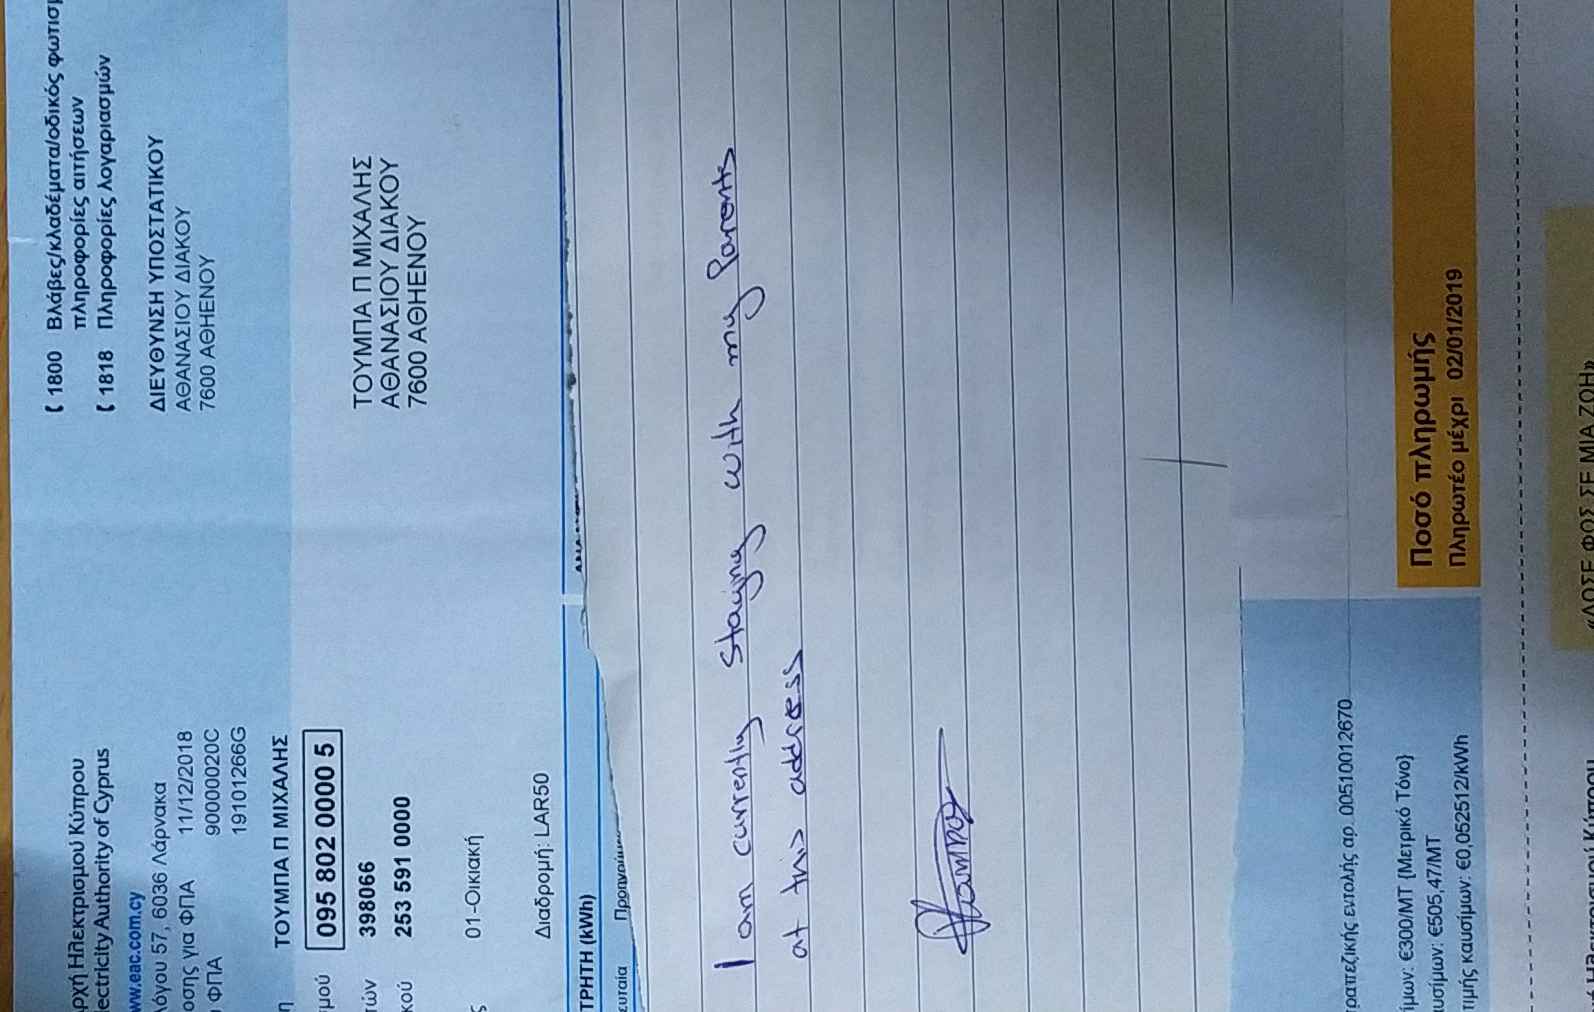 ( 1800 Βλάβες/κλαδέματα/οδικός
πληροφορίες αιτήσεων
( 1818 Πληροφορίες λογαριασμών
ΔΙΕΥΘΥΝΣΗ ΥΠΟΣΤΑΤΙΚΟΥ
ΑΘΑΝΑΣΙΟΥ ΔΙΑΚΟΥ
7600 ΑΘΗΕΝΟΥ
ρχή Ηλεκτρισμού Κύπρου
lectricity Authority of Cyprus
ww.eac.com.cy
λόγου 57, 6036 Λάρνακα
οσης για ΦΠΑ 11/12/2018
ΦΠΑ 90000020C
19101266G
η ΤΟΥΜΠΑ Π ΜΙΧΑΛΗΣ
σμού 095 802 0000 5
τών 398066
κού 253 591 0000
ς 01-Οικιακή
Διαδρομή: LAR50
ΤΟΥΜΠΑ Π ΜΙΧΑΛΗΣ
ΑΘΑΝΑΣΙΟΥ ΔΙΑΚΟΥ
7600 ΑΘΗΕΝΟΥ
ΤΡΗΤΗ (kWh)
ευταία
I am currently staying with my Parents
at this address
τραπεζικής εντολής αρ. 00510012670
ίμων: €300/MT (Μετρικό Τόνο)
αυσίμων: €505,47/MT
τιμής καυσίμων: €0,052512/kWh
Ποσό πληρωμής
Πληρωτέο μέχρι 02/01/2019
«ΔΩΣΕ ΦΩΣ ΣΕ ΜΙΑ ΖΩΗ»